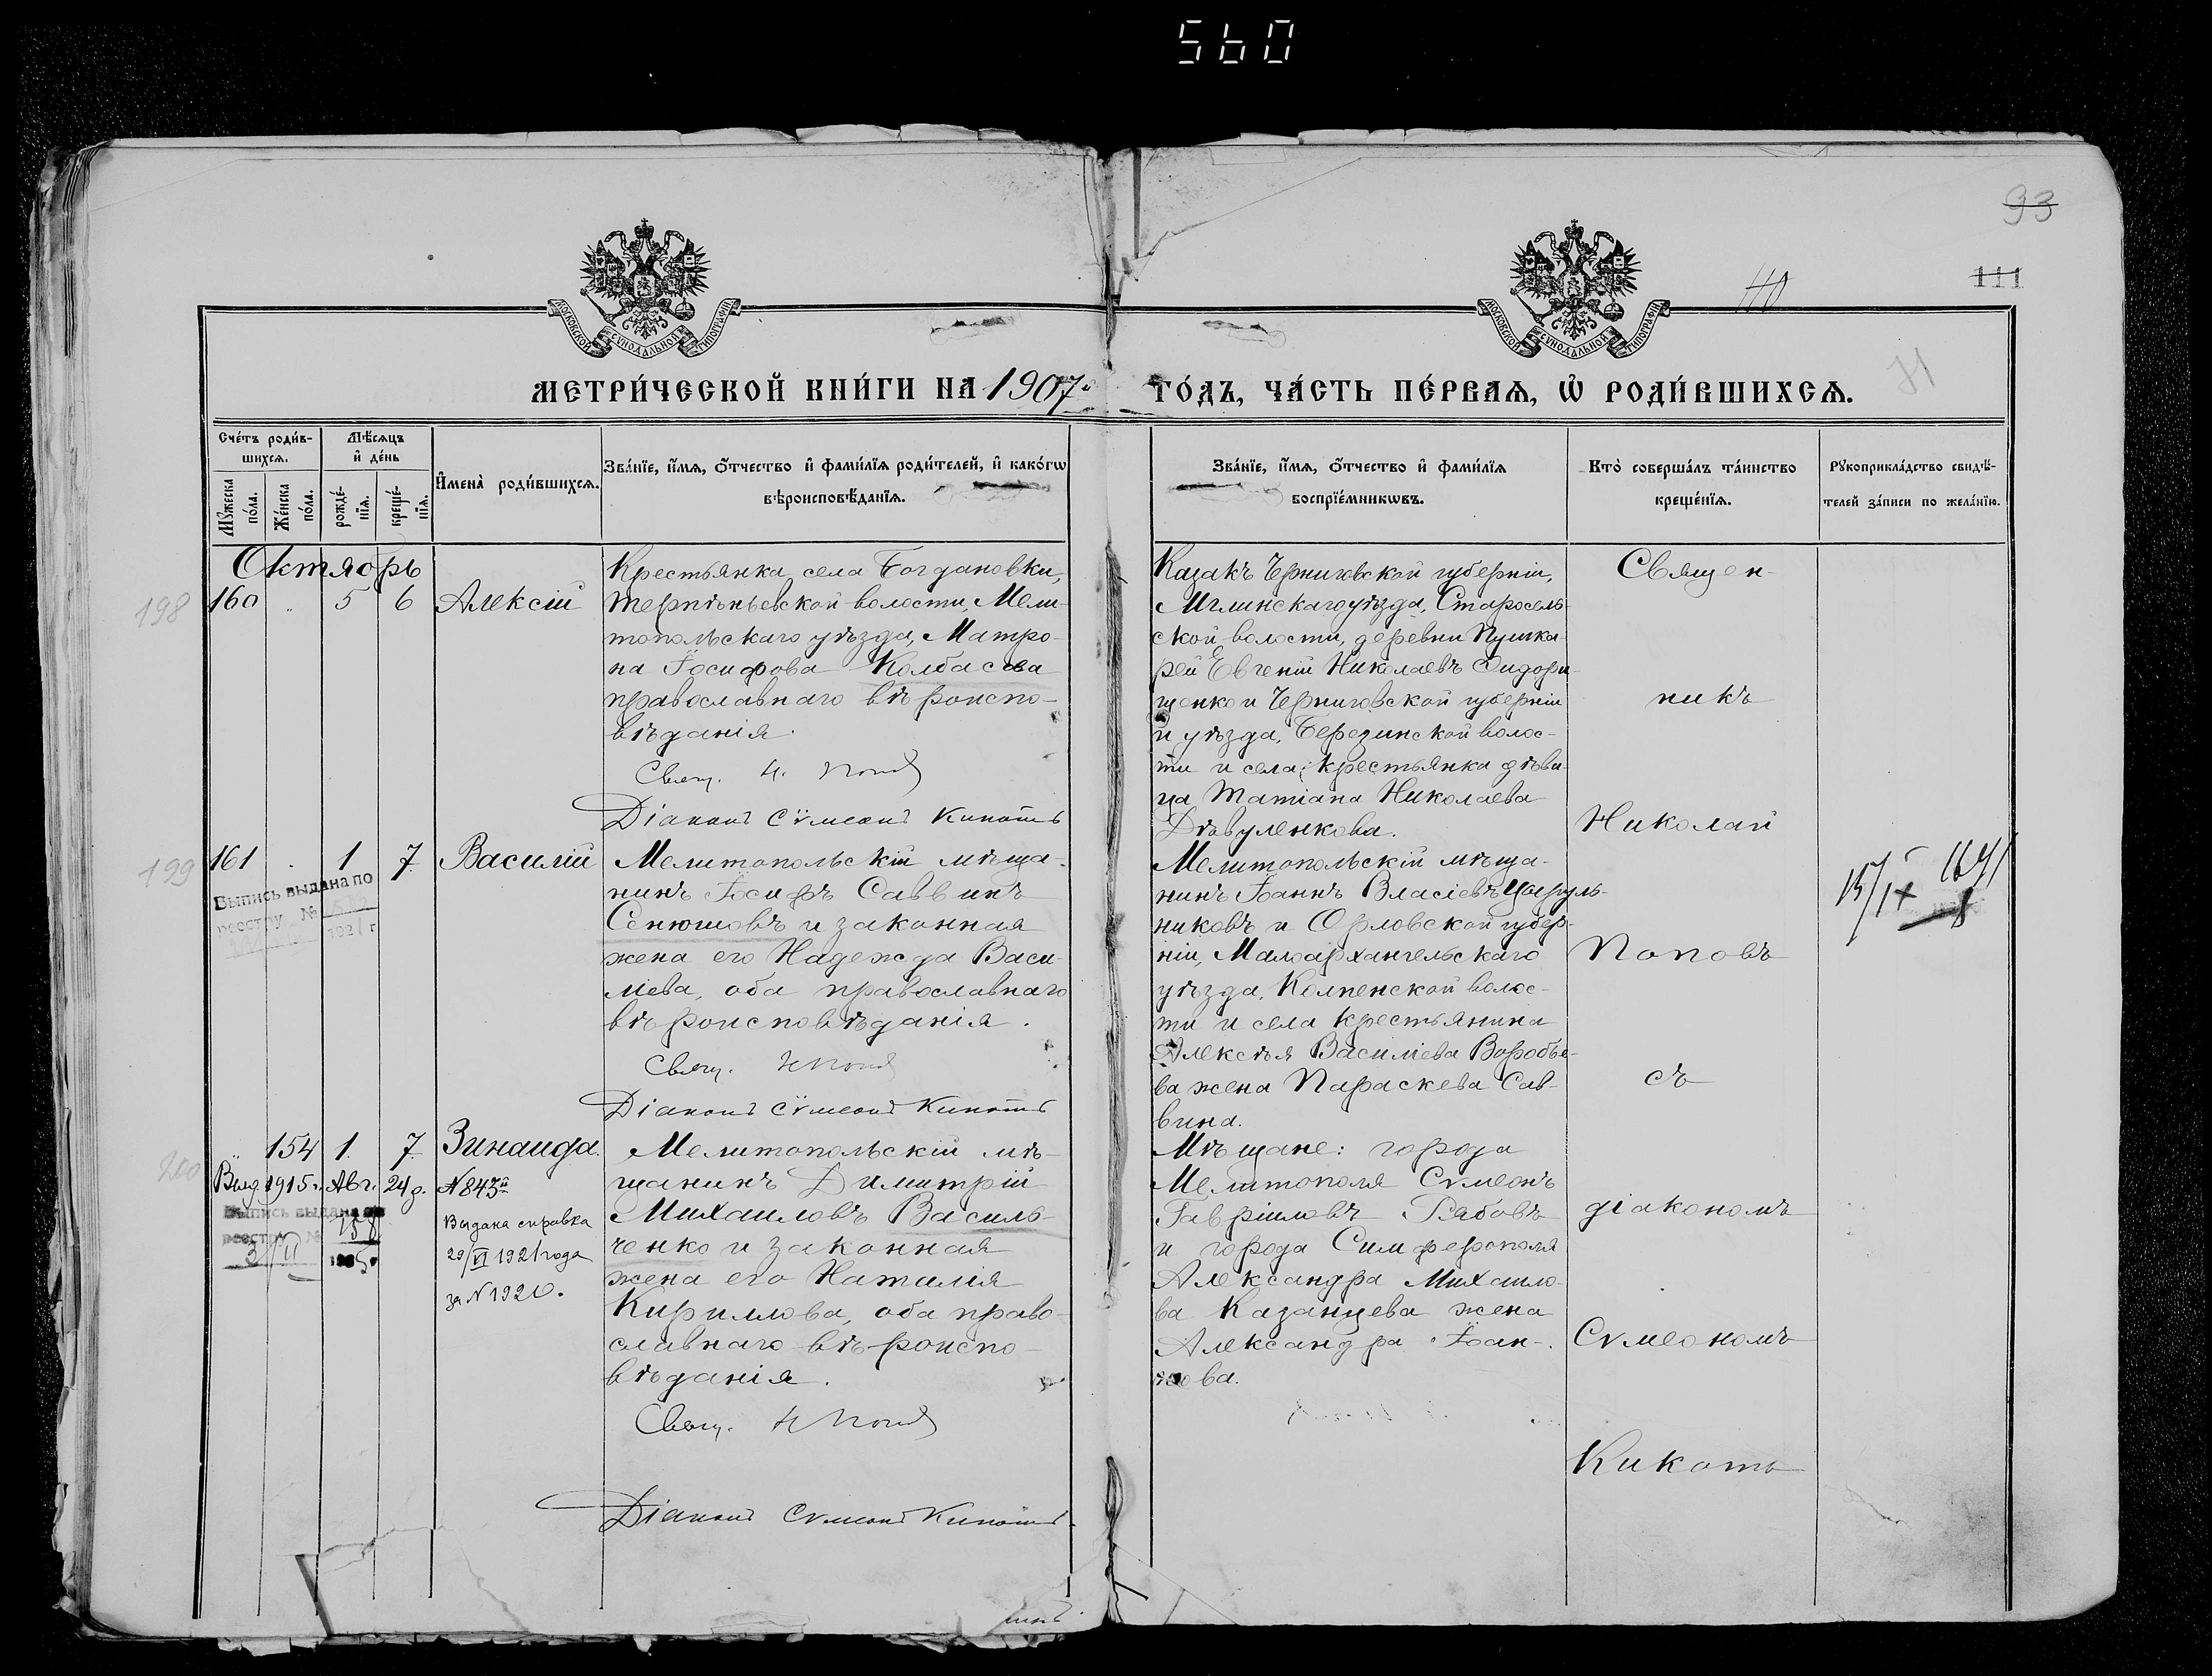 560
93
111
110
71
МОСКОВСКОЙ СѴНОДАЛЬНОЙ ТИПОГРАФІИ
МОСКОВСКОЙ СѴНОДАЛЬНОЙ ТИПОГРАФІИ
МЕТРИ́ЧЕСКОЙ КНИ́ГИ НА 1907й ГО́ДЪ, ЧА́СТЬ ПЕ́РВАѦ, Ѡ҆ РОДИ́ВШИХСѦ.
Сче́тъ роди́в-
шихсѧ.
Мꙋ́жеска по́ла.
Же́нска по́ла.
Мѣ́сѧцъ
и҆ де́нь
рожде́-
нїѧ.
креще́-
нїѧ.
И҆мена̀ роди́вшихсѧ.
Зва́нїе, и҆́мѧ, ѻ҆́тчество и҆ фами́лїѧ роди́телей, и҆ како́гѡ
вѣроисповѣ́данїѧ.
Зва́нїе, и҆́мѧ, ѻ҆́тчество и҆ фами́лїѧ
воспрїе́мникѡвъ.
Кто̀ соверша́лъ та́инство
креще́нїѧ.
Рꙋкоприкла́дство свидѣ́-
телей за́писи по жела́нїю.
Октябрь
198
160 „ 5 6 Алексій
Крестьянка села Богдановки,
Терпѣньевской волости, Мели-
топольскаго уѣзда, Матро-
на Іосифова Колбасова
православнаго вѣроиспо-
вѣданія.
Свящ. Н. Попов
Діаконъ Сѵмеонъ Кикоть
Казакъ Черниговской губерніи,
Мглинскаго уѣзда, Старосель-
ской волости, деревни Пушка-
рей Евгеній Николаевъ Сидори-
щенко и Черниговской губерніи
и уѣзда, Березинской волос-
ти и села, крестьянка дѣви-
ца Татіана Николаева
Дѣвуленкова.
199
161 . 1 7 Василій
Выпись выдана по
реестру №
1921 г
Мелитопольскій мѣща-
нинъ Іосифъ Саввинъ
Сенюшовъ и законная
жена его Надежда Васи-
ліева, оба православнаго
вѣроисповѣданія.
Свящ. Н Попов
Діаконъ Сѵмеонъ Кикоть
Мелитопольскій мѣща-
нинъ Іоаннъ Власіевъ Цыруль-
никовъ и Орловской губер-
ніи, Малоархангельскаго
уѣзда, Колпенской волос-
ти и села крестьянина
Алексѣя Василіева Воробье-
ва жена Параскева Сав-
вина.
200
„ 154 1. 7. Зинаида.
Выд. 1915 г. Авг. 24 д. №843й
Выпись выдана по
реестру № 158
3/II
Выдана справка
29/VI 1921 года
за №1920.
Мелитопольскій мѣ-
щанинъ Димитрій
Михаиловъ Василь-
ченко и законная
жена его Наталія
Кириллова, оба право-
славнаго вѣроиспо-
вѣданія.
Свящ. Н Попов
Діаконъ Сѵмеонъ Кикоть
Мѣщане: города
Мелитополя Сѵмеонъ
Гавріиловъ Рябовъ
и города Симферополя
Александра Михаило-
ва Казанцева жена
Александра Іоан-
нова.
Священ-
никъ
Николай
Поповъ
съ
діакономъ
Сѵмеономъ
Кикоть